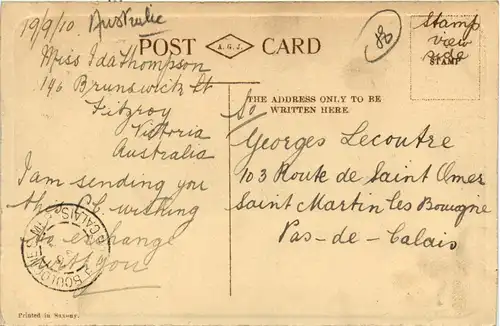 19/9/10. Australie
Miss Ida Thompson
146 Brunswick St
Fitzroy
Victoria
Australia
I am sending you
this P. wishing
to exchange
with you
POST A.G.J. CARD
80
Stamp
view
side
STAMP
THE ADDRESS ONLY TO BE
WRITTEN HERE.
To
Georges Lecoutre
103 Route de Saint Omer
Saint Martin les Boulogne
Pas-de-Calais
BOULOGNE CALAIS
Printed in Saxony.